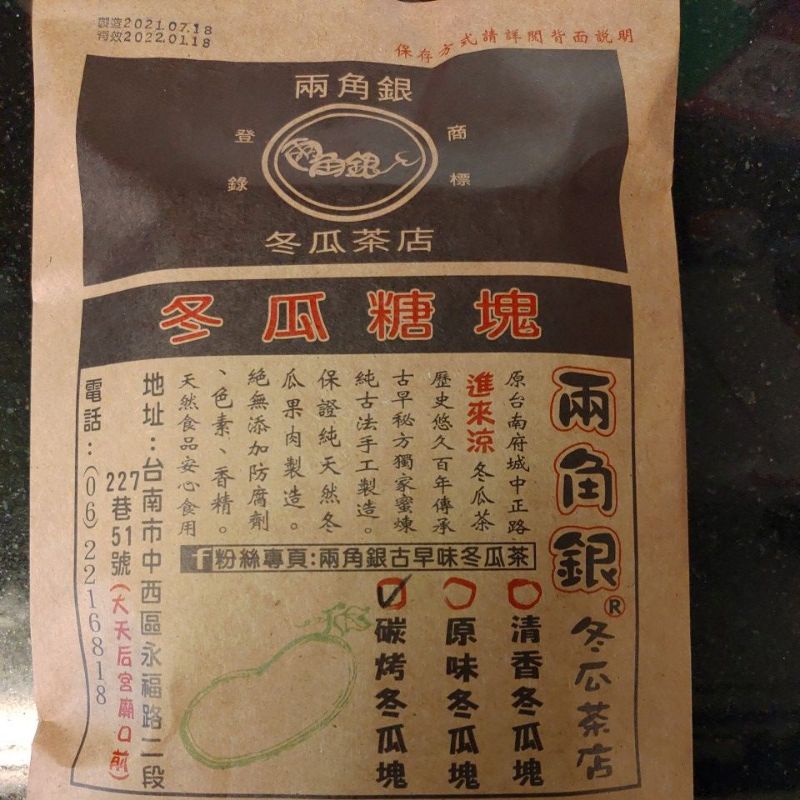 製造2021.07.18
有效2022.01.18
保存方式請詳閱背面說明
兩角銀
登錄
兩角銀
商標
冬瓜茶店
冬瓜糖塊
兩角銀®
冬瓜茶店
原台南府城中正路
進來涼冬瓜茶
歷史悠久百年傳承
古早秘方獨家蜜煉
純古法手工製造。
保證純天然冬
瓜果肉製造。
絕無添加防腐劑
、色素、香精。
天然食品安心食用
f粉絲專頁:兩角銀古早味冬瓜茶
清香冬瓜塊
原味冬瓜塊
碳烤冬瓜塊
地址：台南市中西區永福路二段
227巷51號(大天后宮廟口前)
電話：(06)2216818